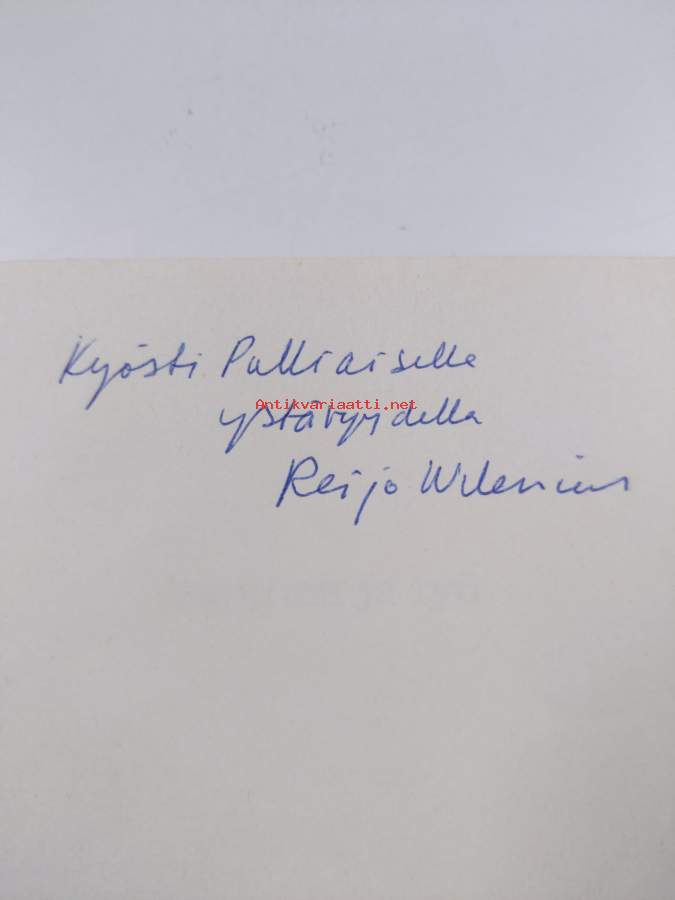 Kyösti Pulliaiselle
Antikvariaatti.net
ystävyydellä
Reijo Wilenius